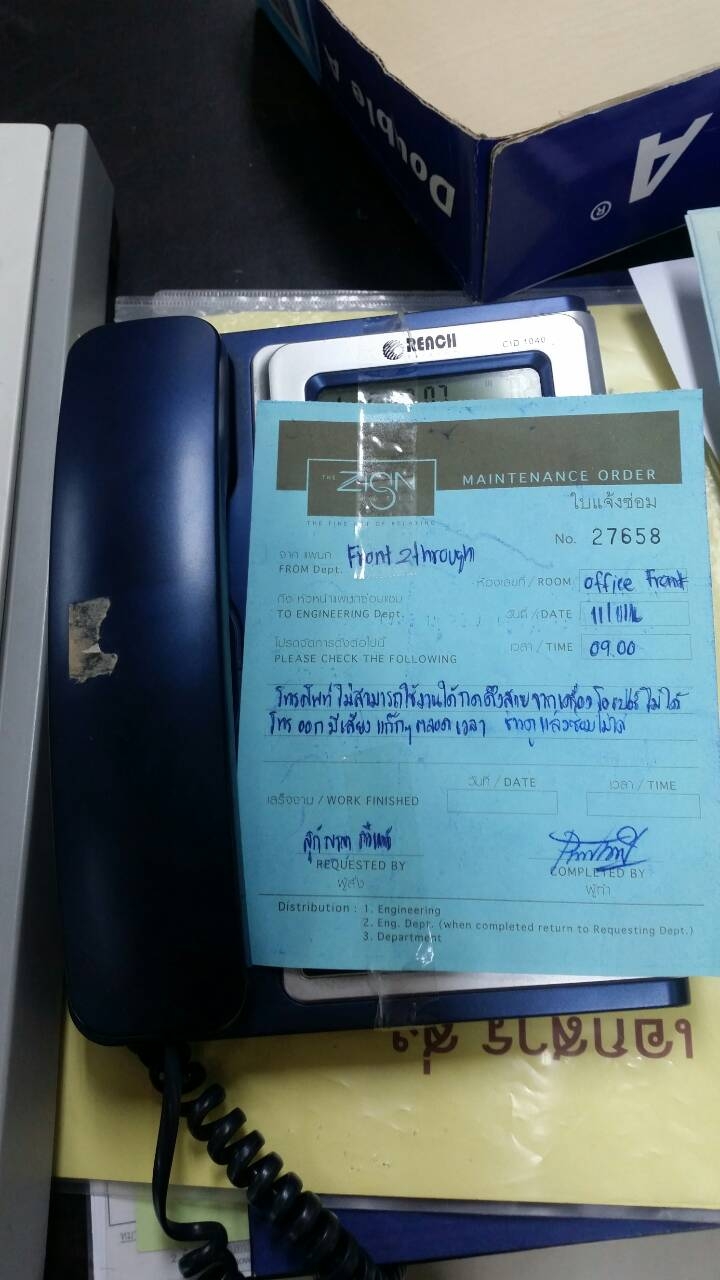 Double A
A
®
REACH
CID 1040
THE ZIGN
MAINTENANCE ORDER
ใบแจ้งซ่อม
No. 27658
จาก แผนก
FROM Dept.
Front 2 through
ห้องเลขที่ / ROOM office Front
ถึง หัวหน้าแผนกซ่อมแซม
TO ENGINEERING Dept.
วันที่ / DATE
โปรดจัดการดังต่อไปนี้
PLEASE CHECK THE FOLLOWING
เวลา / TIME 09.00
โทรศัพท์ ไม่สามารถใช้งานได้ กดดึงสายจากเครื่องโอเปอร์ไม่ได้
โทรออกมีเสียงแก๊กๆ ตลอดเวลา แล้วซ่อมไม่ได้
วันที่ / DATE เวลา / TIME
เสร็จงาน / WORK FINISHED
REQUESTED BY
ผู้สั่ง
COMPLETED BY
ผู้ทำ
Distribution : 1. Engineering
2. Eng. Dept. (when completed return to Requesting Dept.)
3. Department
เอกสาร ส่ง